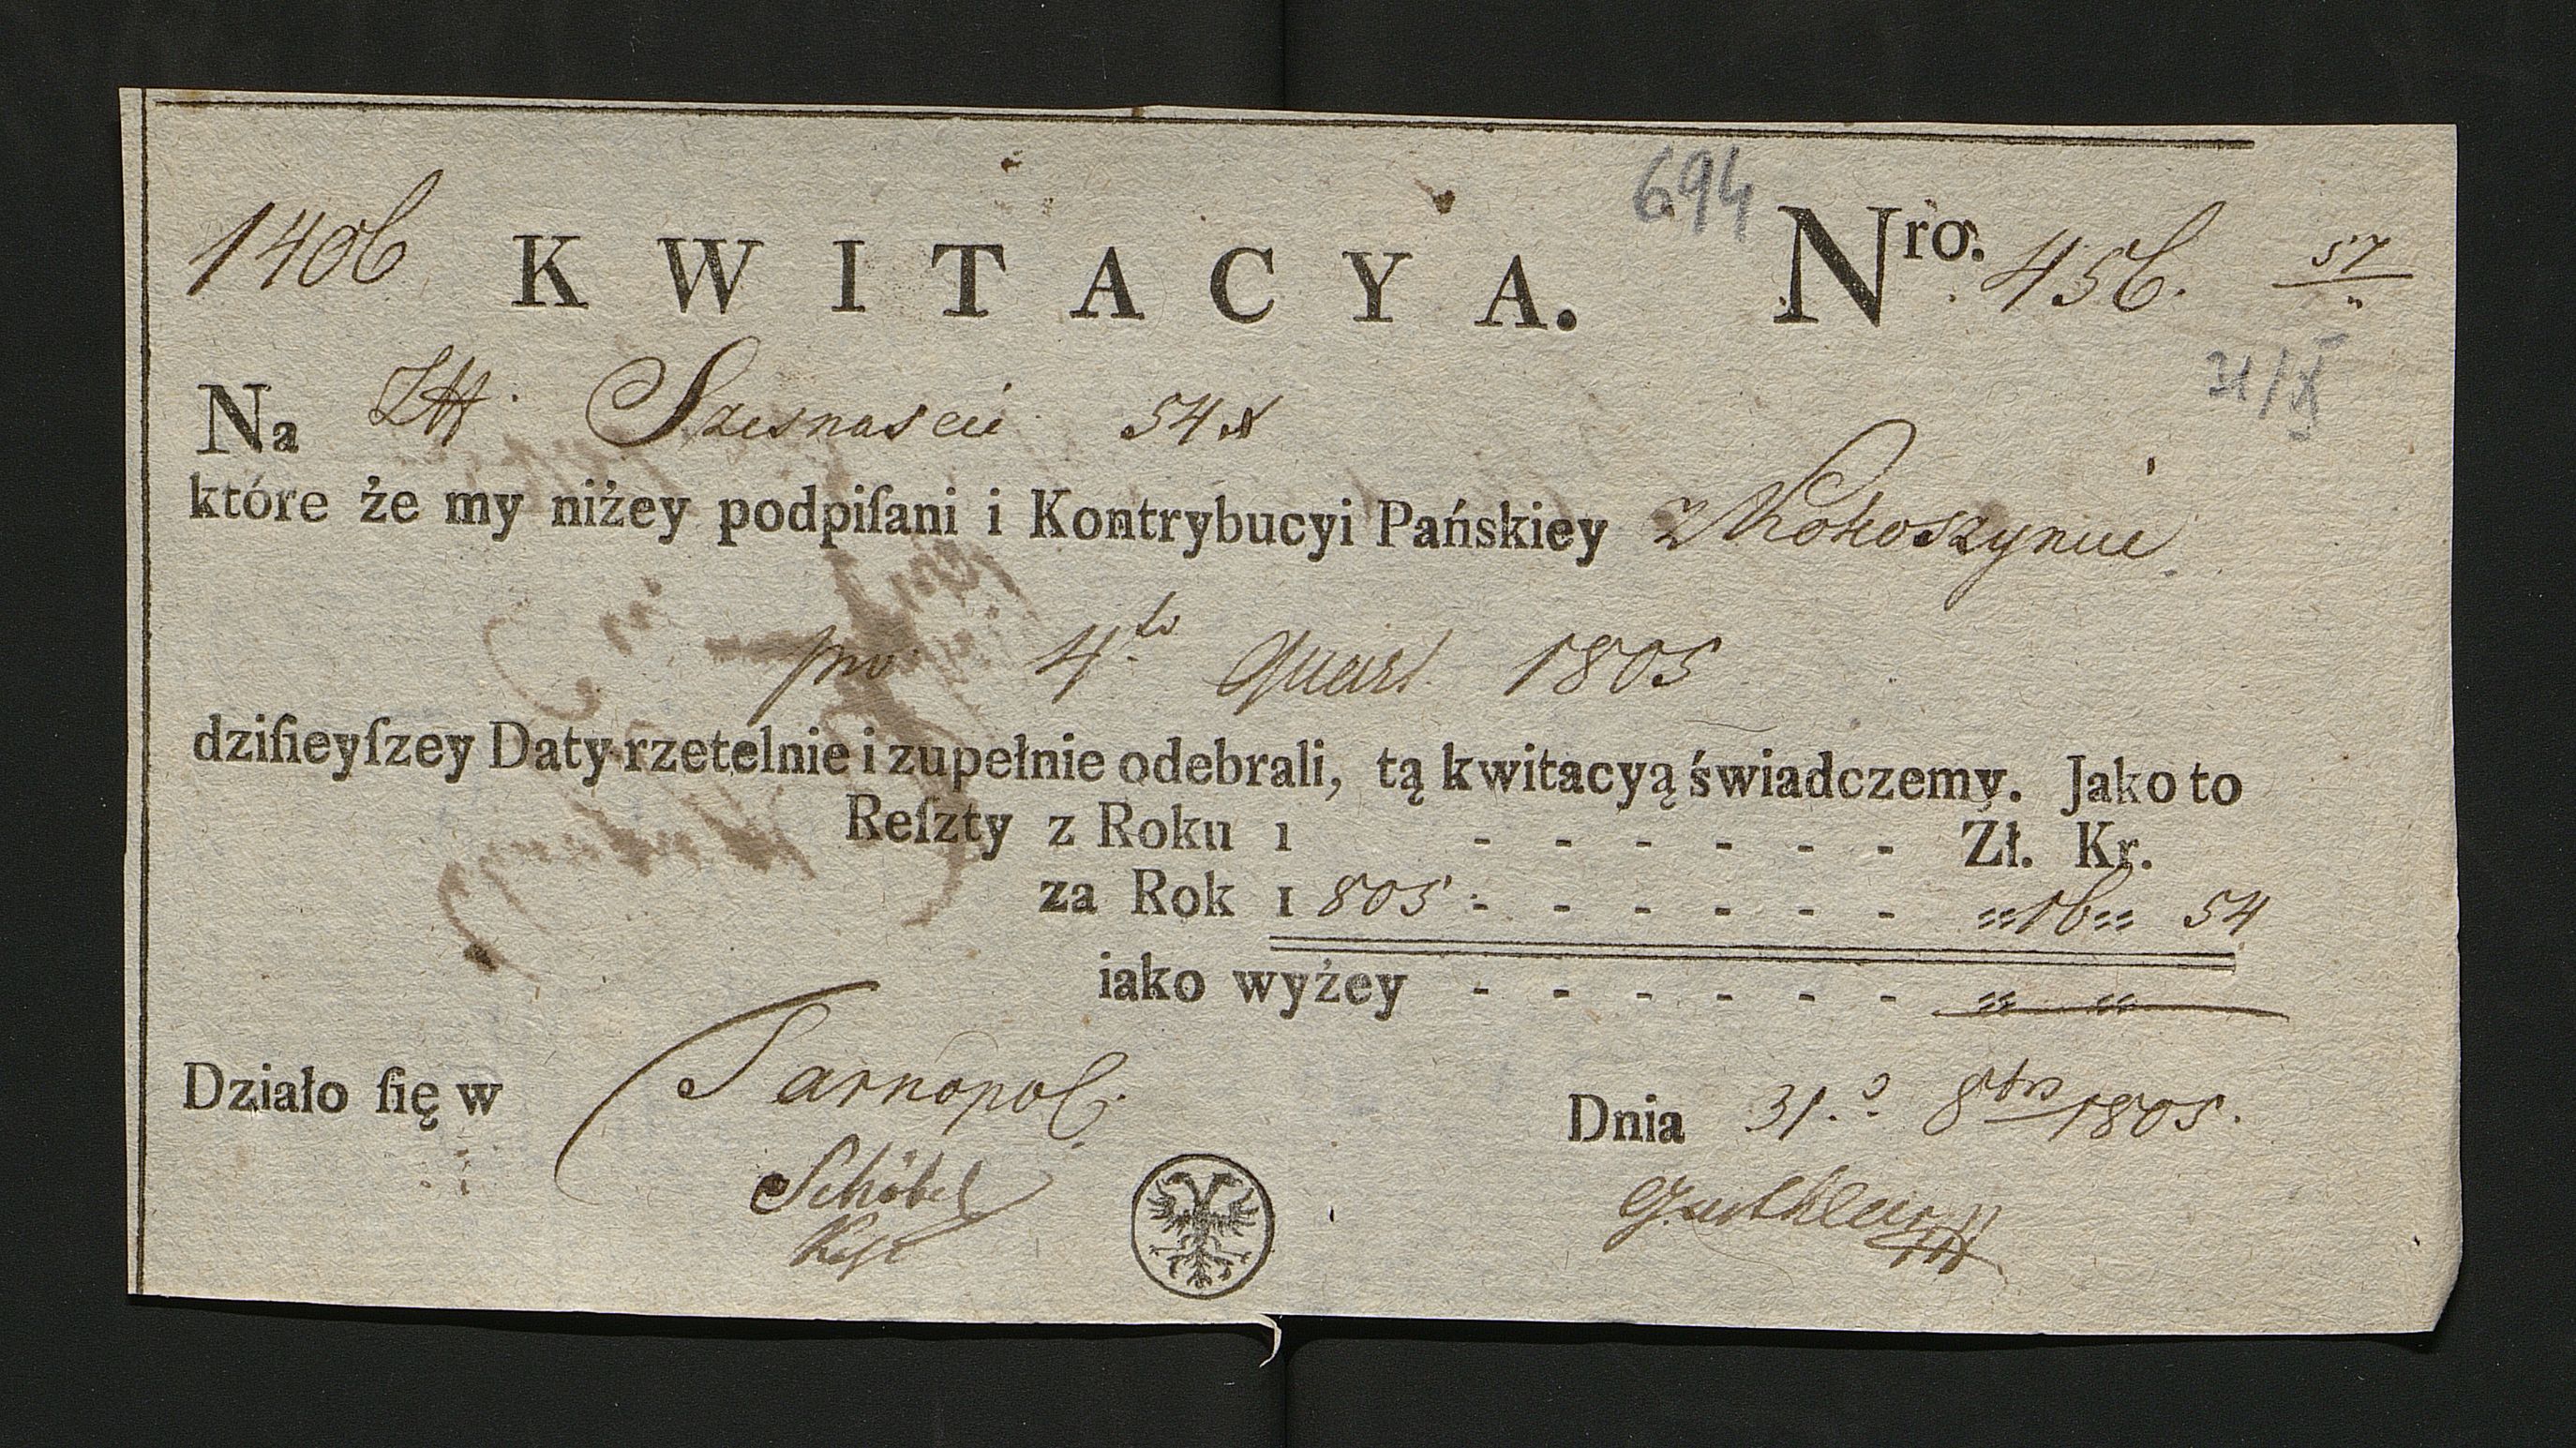 694
1406 KWITACYA. Nro. 456. 57
31/X
Na Szesnascie 54 x
które że my niżey podpiſani i Kontrybucyi Pańskiey z Kokoszynie
pro 4to Quart 1805
dziſieyſzey Daty rzetelnie i zupełnie odebrali, tą kwitacyą świadczemy. Jako to
Reſzty z Roku 1 - - - - - - Zł. Kr.
za Rok 1805 - - - - - - " 16 " 54
iako wyżey - - - - - - " "
Działo ſię w Tarnopol. Dnia 31. 8bris 1805.
Schöbel